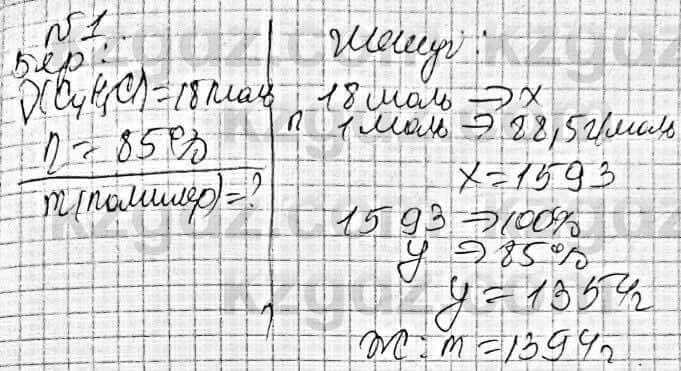 №1.
Бер:
ν(C₄H₅Cl)=18моль
η=85%
m(полимер)=?
Шешуі:
18моль⇒x
n 1моль⇒88,5г/моль
x=1593
1593⇒100%
y⇒85%
y=1354г
Ж: m=1394г
kzgaz.com